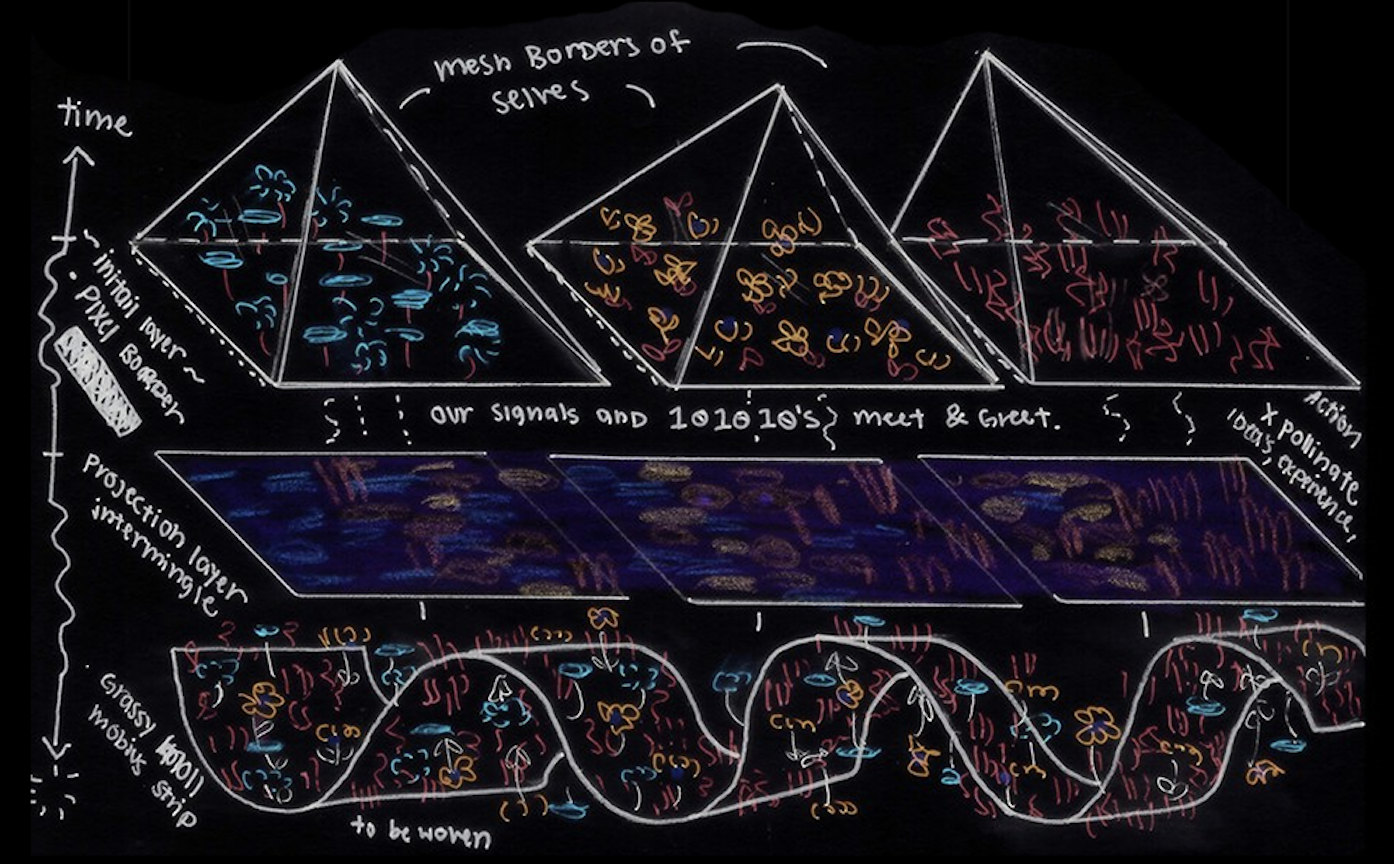 mesh Borders of
selves
time
~ initail layer ~
• Pixel Boarder
our signals and 101010's} meet & Greet.
Action
x pollinate
ideas, experience,
Projection layer
intermingle
Grassy
mobius strip
to be woven